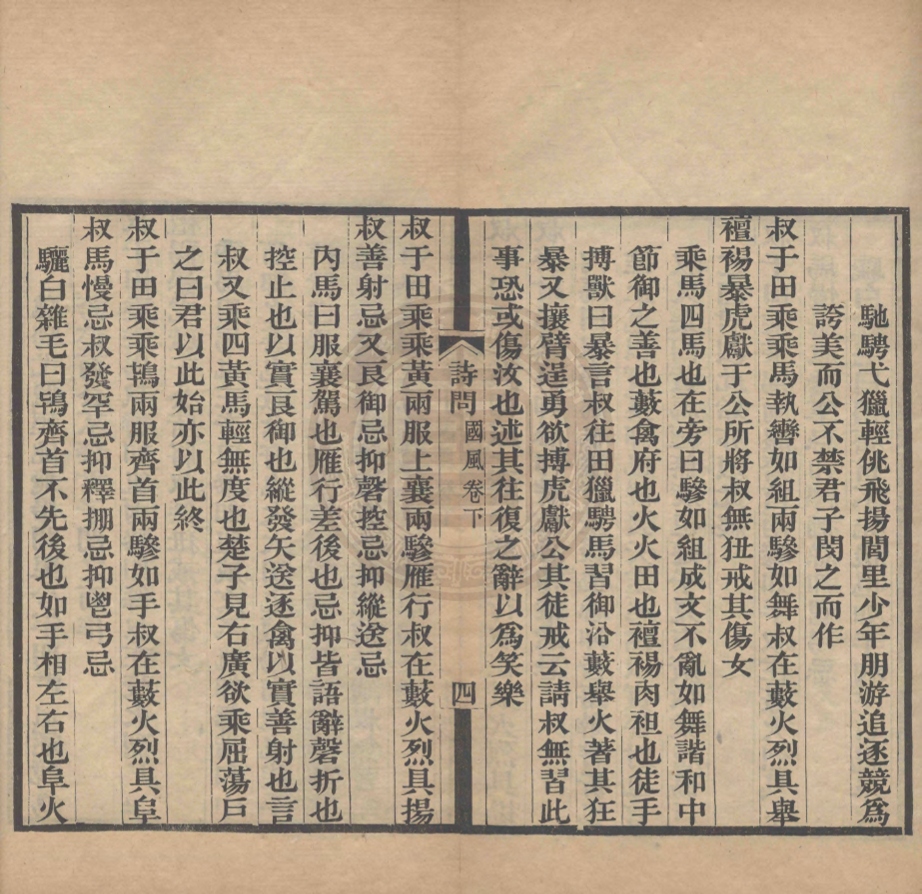 馳騁弋獵輕佻飛揚閭里少年朋游追逐競為
誇美而公不禁君子閔之而作
叔于田乘乘馬執轡如組兩驂如舞叔在藪火烈具舉
襢裼暴虎獻于公所將叔無狃戒其傷女
乘馬四馬也在旁曰驂如組成文不亂如舞諧和中
節御之善也藪禽府也火火田也襢裼肉袒也徒手
搏獸曰暴言叔往田獵騁馬習御沿藪舉火著其狂
暴又攘臂逞勇欲搏虎獻公其徒戒云請叔無習此
事恐或傷汝也述其往復之辭以為笑樂
詩問國風卷下
四
叔于田乘乘黃兩服上襄兩驂雁行叔在藪火烈具揚
叔善射忌又良御忌抑磬控忌抑縱送忌
內馬曰服襄駕也雁行差後也忌抑皆語辭磬折也
控止也以實良御也縱發矢送逐禽以實善射也言
叔又乘四黃馬輕無度也楚子見右廣欲乘屈蕩戶
之曰君以此始亦以此終
叔于田乘乘鴇兩服齊首兩驂如手叔在藪火烈具阜
叔馬慢忌叔發罕忌抑釋掤忌抑鬯弓忌
驪白雜毛曰鴇齊首不先後也如手相左右也阜火